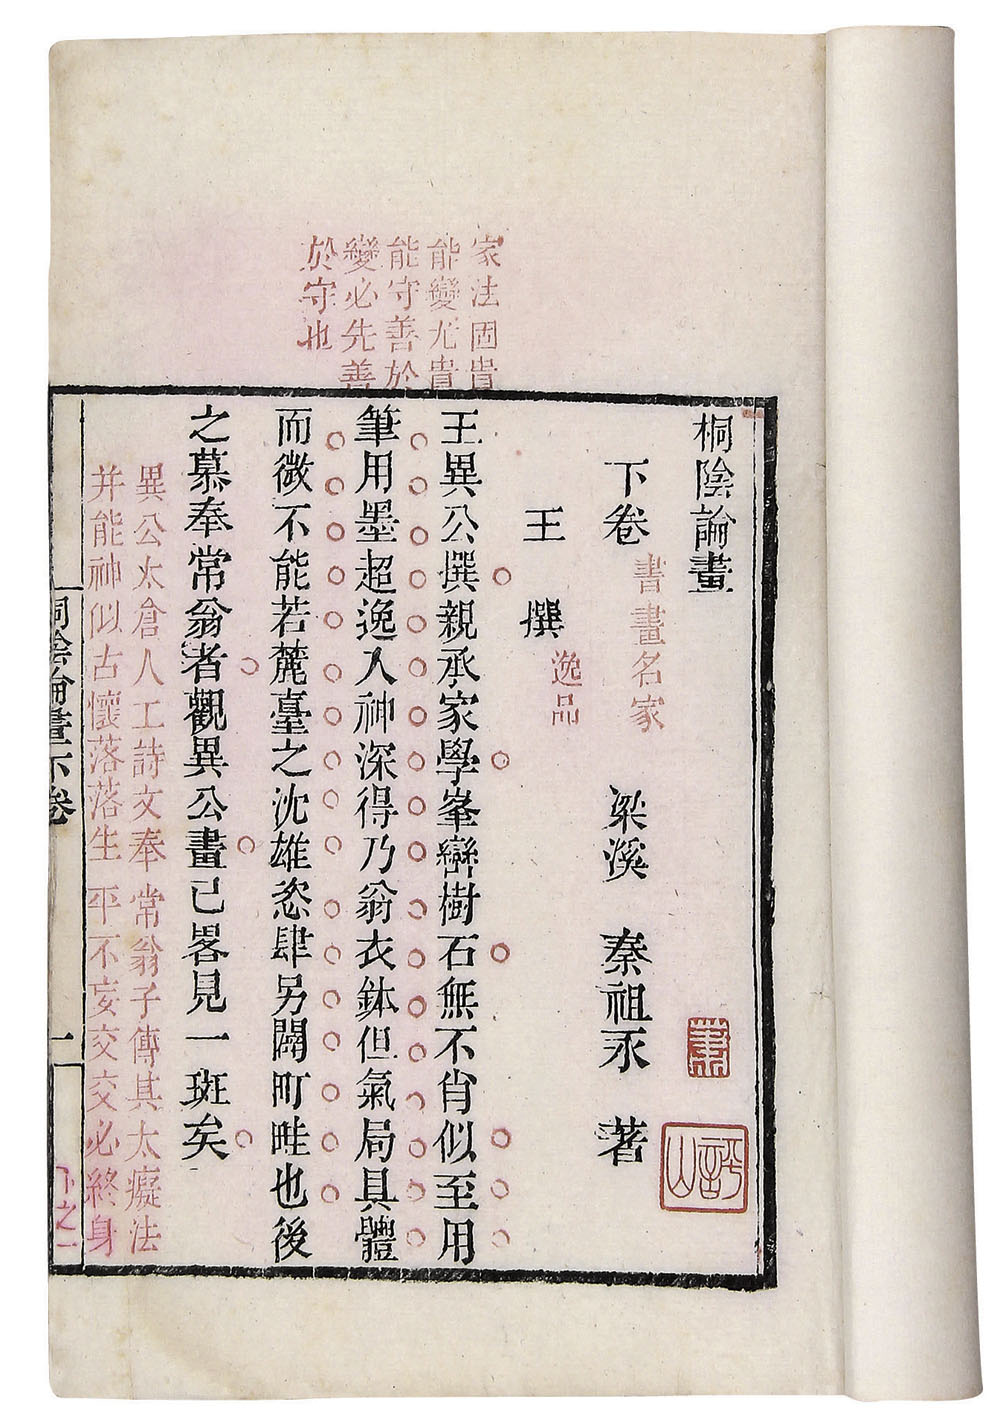 家法固貴
能變尤貴
能守善於
變必先善
於守也
桐陰論畫
下卷 書畫名家 梁溪 秦祖永 著
王 撰 逸品
王異公撰親承家學峯巒樹石無不肖似至用
筆用墨超逸入神深得乃翁衣鉢但氣局具體
而微不能若麓臺之沈雄恣肆另闢町畦也後
之慕奉常翁者觀異公畫已畧見一斑矣
異公太倉人工詩文奉常翁子傳其太癡法
并能神似古懷落落生平不妄交交必終身
桐陰論畫下卷
一
下之一
評
山